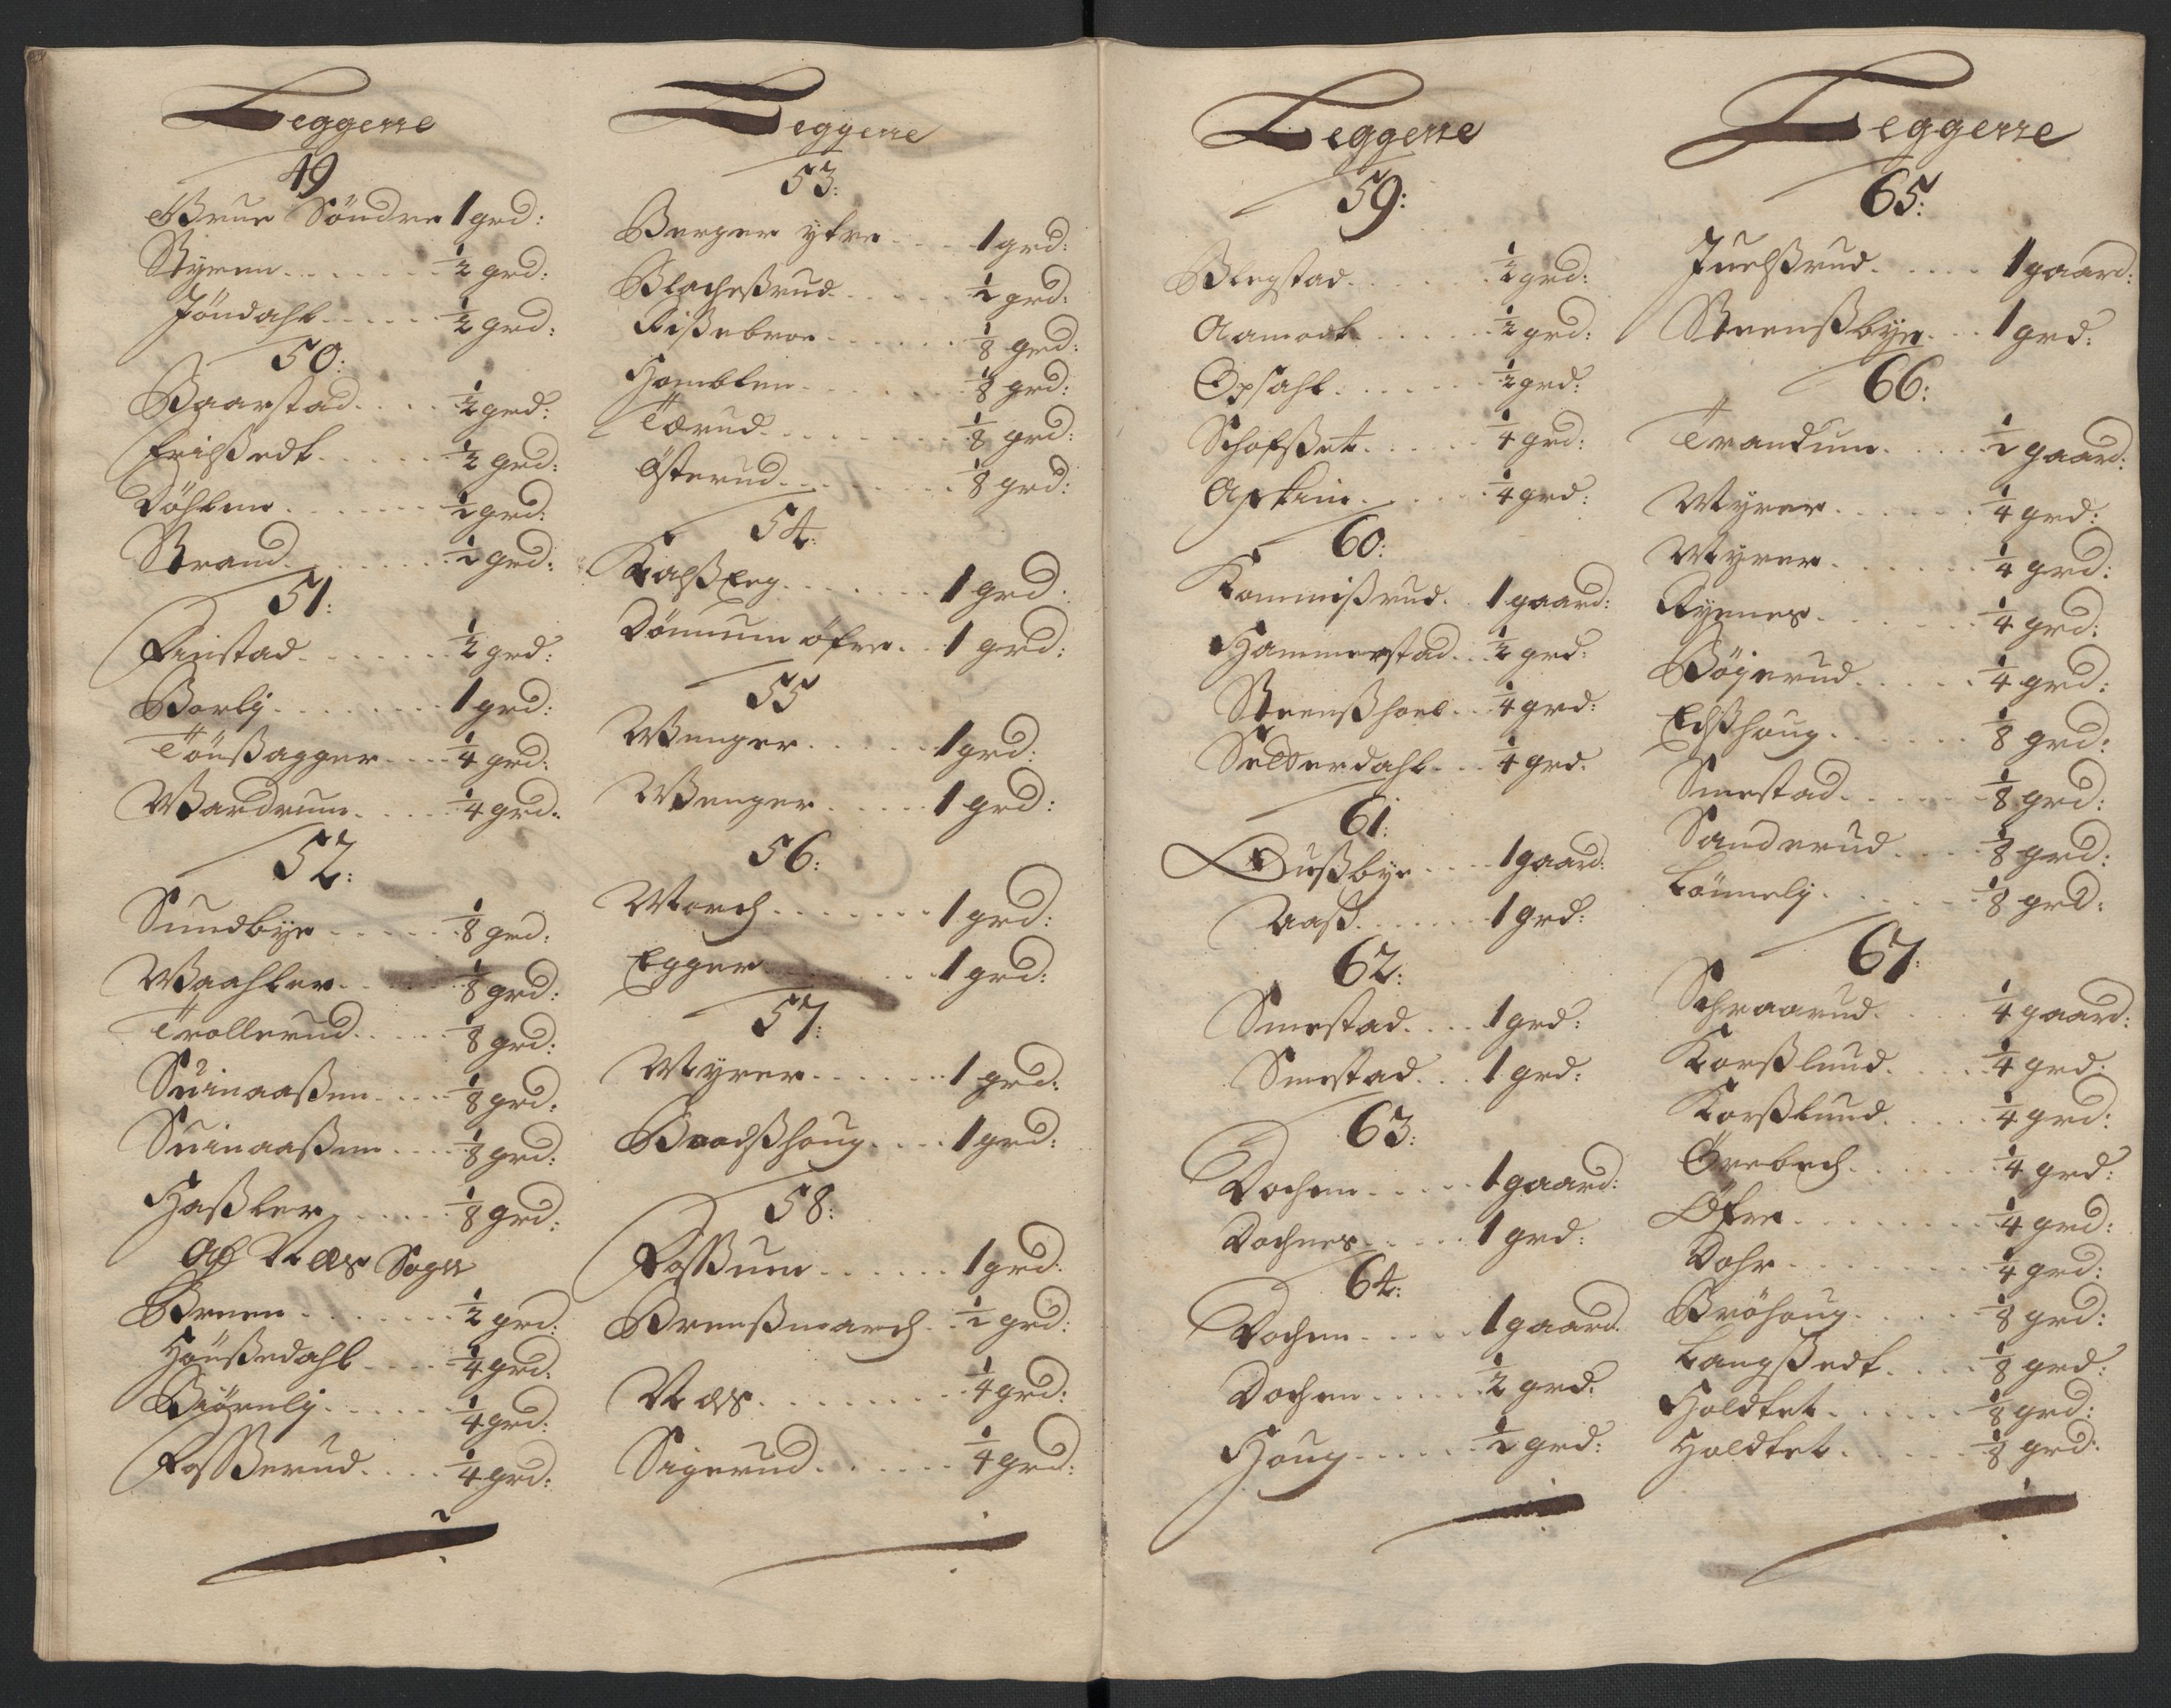 Leggerne
49
Brue Söndre 1 grd:
Styren ½ grd:
Jöndahl ½ grd:
50:
Baarstad ½ grd:
Erichstedt ½ grd:
Döhlen ½ grd:
Strand ½ grd:
51:
Finstad ½ grd:
Borlj 1 grd:
Tönßagger ¼ grd:
Wardrum ¼ grd:
52:
Sundbye ⅛ grd:
Waahler ⅛ grd:
Trollerud ⅛ grd:
Suinaaßen ⅛ grd:
Suinaaßen ⅛ grd:
Haßler ⅛ grd:
Af Næs Sogn
Breen ½ grd:
Hönßedahl ¼ grd:
Biörnlj ¼ grd:
Foßerud ¼ grd:
Leggerne
53:
Berger ytre 1 grd:
Blacheßrud ½ grd:
Rißebroe ⅛ grd:
Homblen ⅛ grd:
Tærud ⅛ grd:
Österud ⅛ grd:
54:
Kalßeeg 1 grd:
Dönnum öfre 1 grd:
55
Wenger 1 grd:
Wenger 1 grd:
56:
Morch 1 grd:
Egger 1 grd:
57:
Myrer 1 grd:
Brodßhoug 1 grd:
58:
Foßum 1 grd:
Breenßmarch ½ grd:
Næs ¼ grd:
Sigerud ¼ grd:
Leggerne
59:
Blegstad ½ grd:
Aamodt ½ grd:
Opsahl ½ grd:
Schofßet ¼ grd:
Askim ¼ grd:
60:
Kommißrud 1 gaard:
Hammerstad ½ grd:
Steenßhoel ¼ grd:
Setterdahl ¼ grd:
61:
Dußbye 1 gaard:
Aaß 1 grd:
62:
Smestad 1 grd:
Smestad 1 grd:
63:
Dochen 1 gaard:
Dochnes 1 grd:
64:
Dochen 1 gaard:
Dochen ½ grd:
Houg ½ grd:
Leggerne
65:
Juelßrud 1 gaard:
Steenßbye 1 grd:
66:
Trandum ½ gaard:
Myrer ¼ grd:
Myrer ¼ grd:
Rynnes ¼ grd:
Bögerud ¼ grd:
Edßhoug ⅛ grd:
Smestad ⅛ grd:
Sanderud ⅛ grd:
Lönnelj ⅛ grd:
67:
Schraarud ¼ gaard:
Korßlund ¼ grd:
Korßlund ¼ grd:
Örebech ¼ grd:
Öfre ¼ grd:
Dahr ¼ grd:
Bröhoug ⅛ grd:
Langßedt ⅛ grd:
Holdtet ⅛ grd:
Holdtet ⅛ grd: